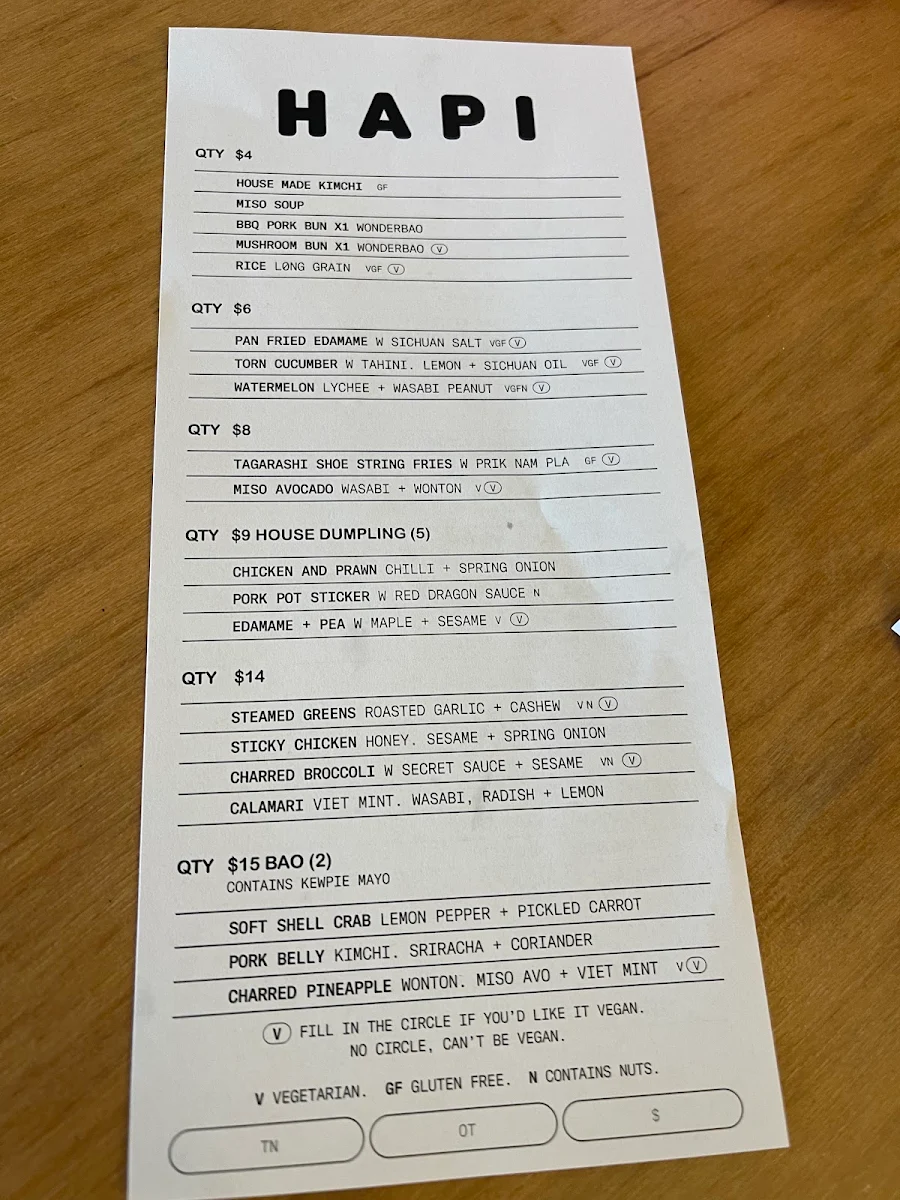 HAPI
QTY $4
HOUSE MADE KIMCHI GF
MISO SOUP
BBQ PORK BUN X1 WONDERBAO
MUSHROOM BUN X1 WONDERBAO V
RICE LØNG GRAIN VGF V
QTY $6
PAN FRIED EDAMAME W SICHUAN SALT VGF V
TORN CUCUMBER W TAHINI. LEMON + SICHUAN OIL VGF V
WATERMELON LYCHEE + WASABI PEANUT VGFN V
QTY $8
TAGARASHI SHOE STRING FRIES W PRIK NAM PLA GF V
MISO AVOCADO WASABI + WONTON V V
QTY $9 HOUSE DUMPLING (5)
CHICKEN AND PRAWN CHILLI + SPRING ONION
PORK POT STICKER W RED DRAGON SAUCE N
EDAMAME + PEA W MAPLE + SESAME V V
QTY $14
STEAMED GREENS ROASTED GARLIC + CASHEW V N V
STICKY CHICKEN HONEY. SESAME + SPRING ONION
CHARRED BROCCOLI W SECRET SAUCE + SESAME VN V
CALAMARI VIET MINT. WASABI, RADISH + LEMON
QTY $15 BAO (2)
CONTAINS KEWPIE MAYO
SOFT SHELL CRAB LEMON PEPPER + PICKLED CARROT
PORK BELLY KIMCHI. SRIRACHA + CORIANDER
CHARRED PINEAPPLE WONTON. MISO AVO + VIET MINT V V
V FILL IN THE CIRCLE IF YOU'D LIKE IT VEGAN.
NO CIRCLE, CAN'T BE VEGAN.
V VEGETARIAN. GF GLUTEN FREE. N CONTAINS NUTS.
TN OT $